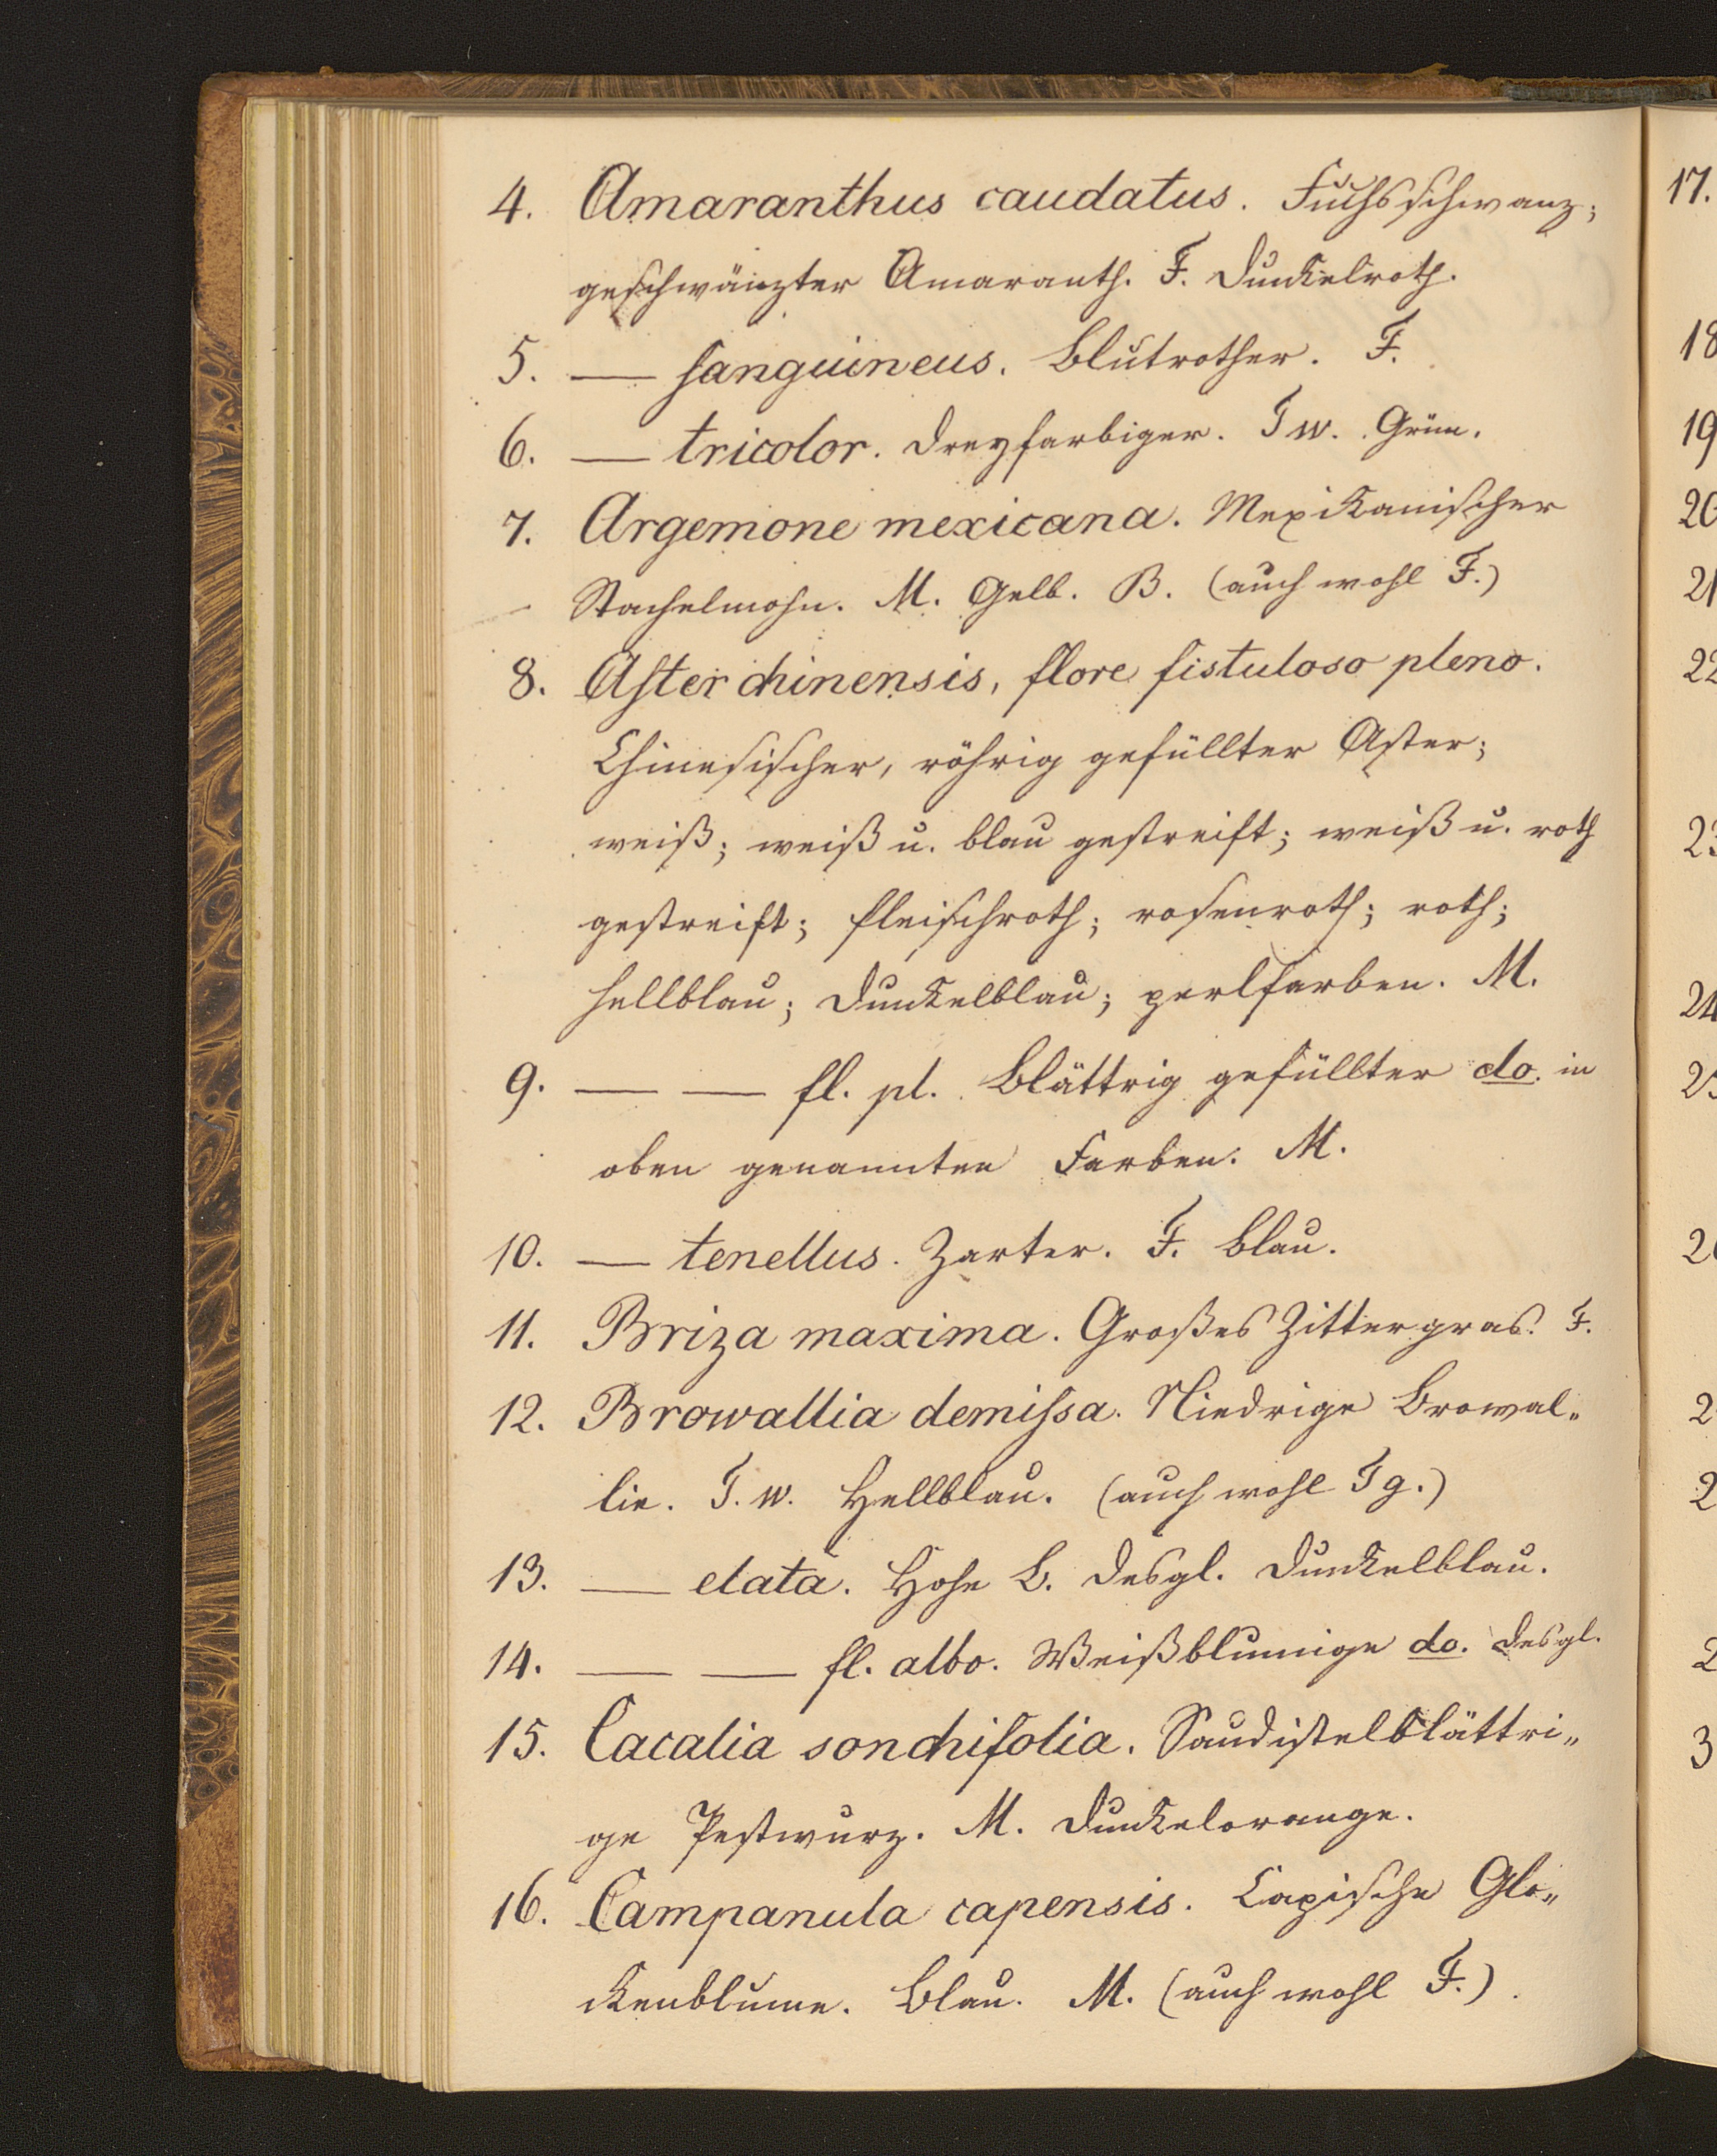 4. Amaranthus caudatus. Fuchsschwanz;
geschwänzter Amaranth. F. Dunkelroth.
5. — sanguineus. Blutrother. F.
6. — tricolor. Dreyfarbiger. T w. Grün.
7. Argemone mexicana. Mexikanischer
Stachelmohn. M. Gelb. B. (auch wohl F.)
8. Aster chinensis, flore fistuloso pleno.
Chinesischer, röhrig gefüllter Aster;
weiß; weiß u. blau gestreift; weiß u. roth
gestreift; fleischroth; rosenroth; roth;
hellblau; dunkelblau; perlfarben. M.
9. — — fl. pl. Blättrig gefüllter do. in
oben genannten Farben. M.
10. — tenellus. Zarter. F. Blau.
11. Briza maxima. Großes Zittergras. F.
12. Browallia demissa. Niedrige Browal„
lie. T. w. Hellblau. (auch wohl T g.)
13. — elata. Hohe B. desgl. Dunkelblau.
14. — — fl. albo. Weißblumige do. desgl.
15. Cacalia sonchifolia. Saudistelblättri„
ge Pestwurz. M. Dunkelorange.
16. Campanula capensis. Capische Glo„
ckenblume. Blau. M. (auch wohl F.).
17.
18
19
20
21
22